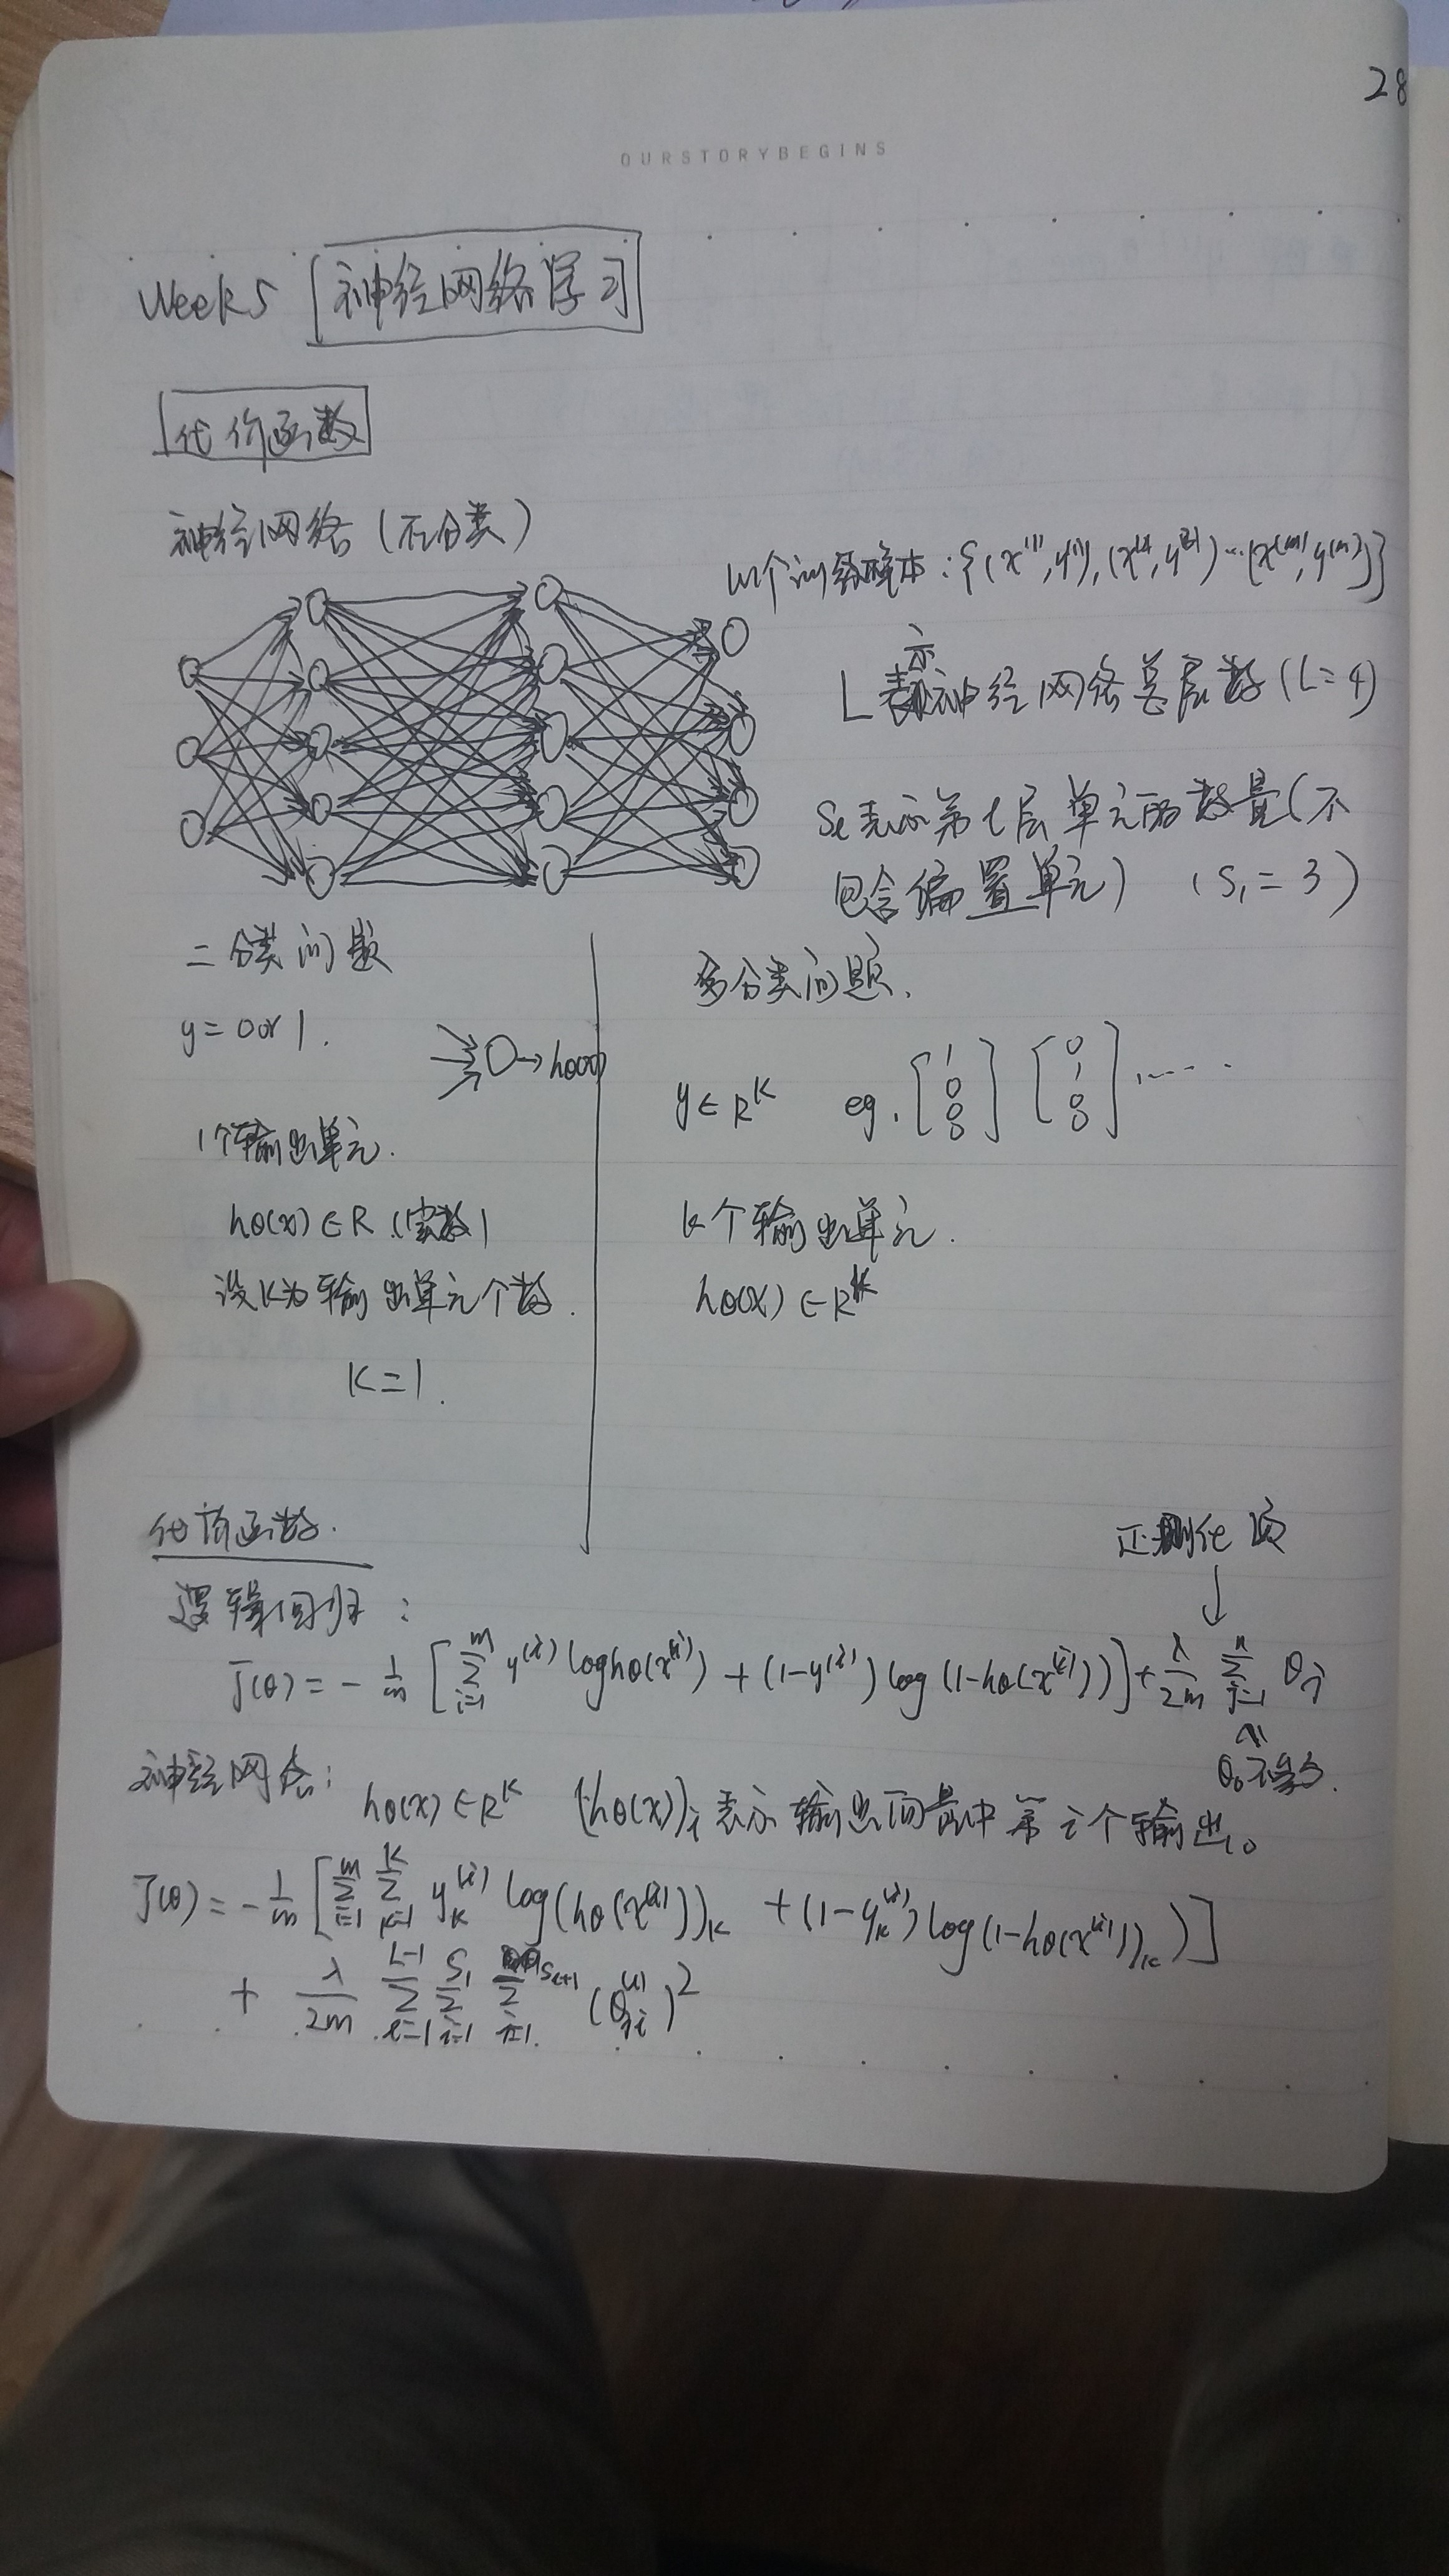 28
OURSTORYBEGINS
Week5 神经网络学习
代价函数
神经网络(在分类)
m个训练样本:{(x^(1),y^(1)),(x^(2),y^(2))…(x^(m),y^(m))}
L表示神经网络总层数(L=4)
S_l表示第l层单元的数量(不
包含偏置单元) (S_1=3)
二分类问题
y=0 or 1.
→hθ(x)
1个输出单元.
hθ(x)∈R(实数)
设K为输出单元个数.
K=1.
多分类问题.
y∈R^K eg. [1 0 0 0] [0 1 0 0] , ....
K个输出单元.
hθ(x)∈R^K
代价函数.
正则化项
↓
逻辑回归:
J(θ)=-1/m [∑_{i=1}^{m} y^(i) log hθ(x^(i)) + (1-y^(i)) log(1-hθ(x^(i)))] + λ/2m ∑_{j=1}^{n} θ_j
θ_0不参与.
神经网络:
hθ(x)∈R^K (hθ(x))_i表示输出向量中第i个输出。
J(θ)=-1/m [∑_{i=1}^{m} ∑_{k=1}^{K} y_k^(i) log(hθ(x^(i)))_k + (1-y_k^(i)) log(1-hθ(x^(i))_k)]
+ λ/2m ∑_{l=1}^{L-1} ∑_{i=1}^{S_l} ∑_{j=1}^{S_{l+1}} (θ_{ji}^{(l)})^2